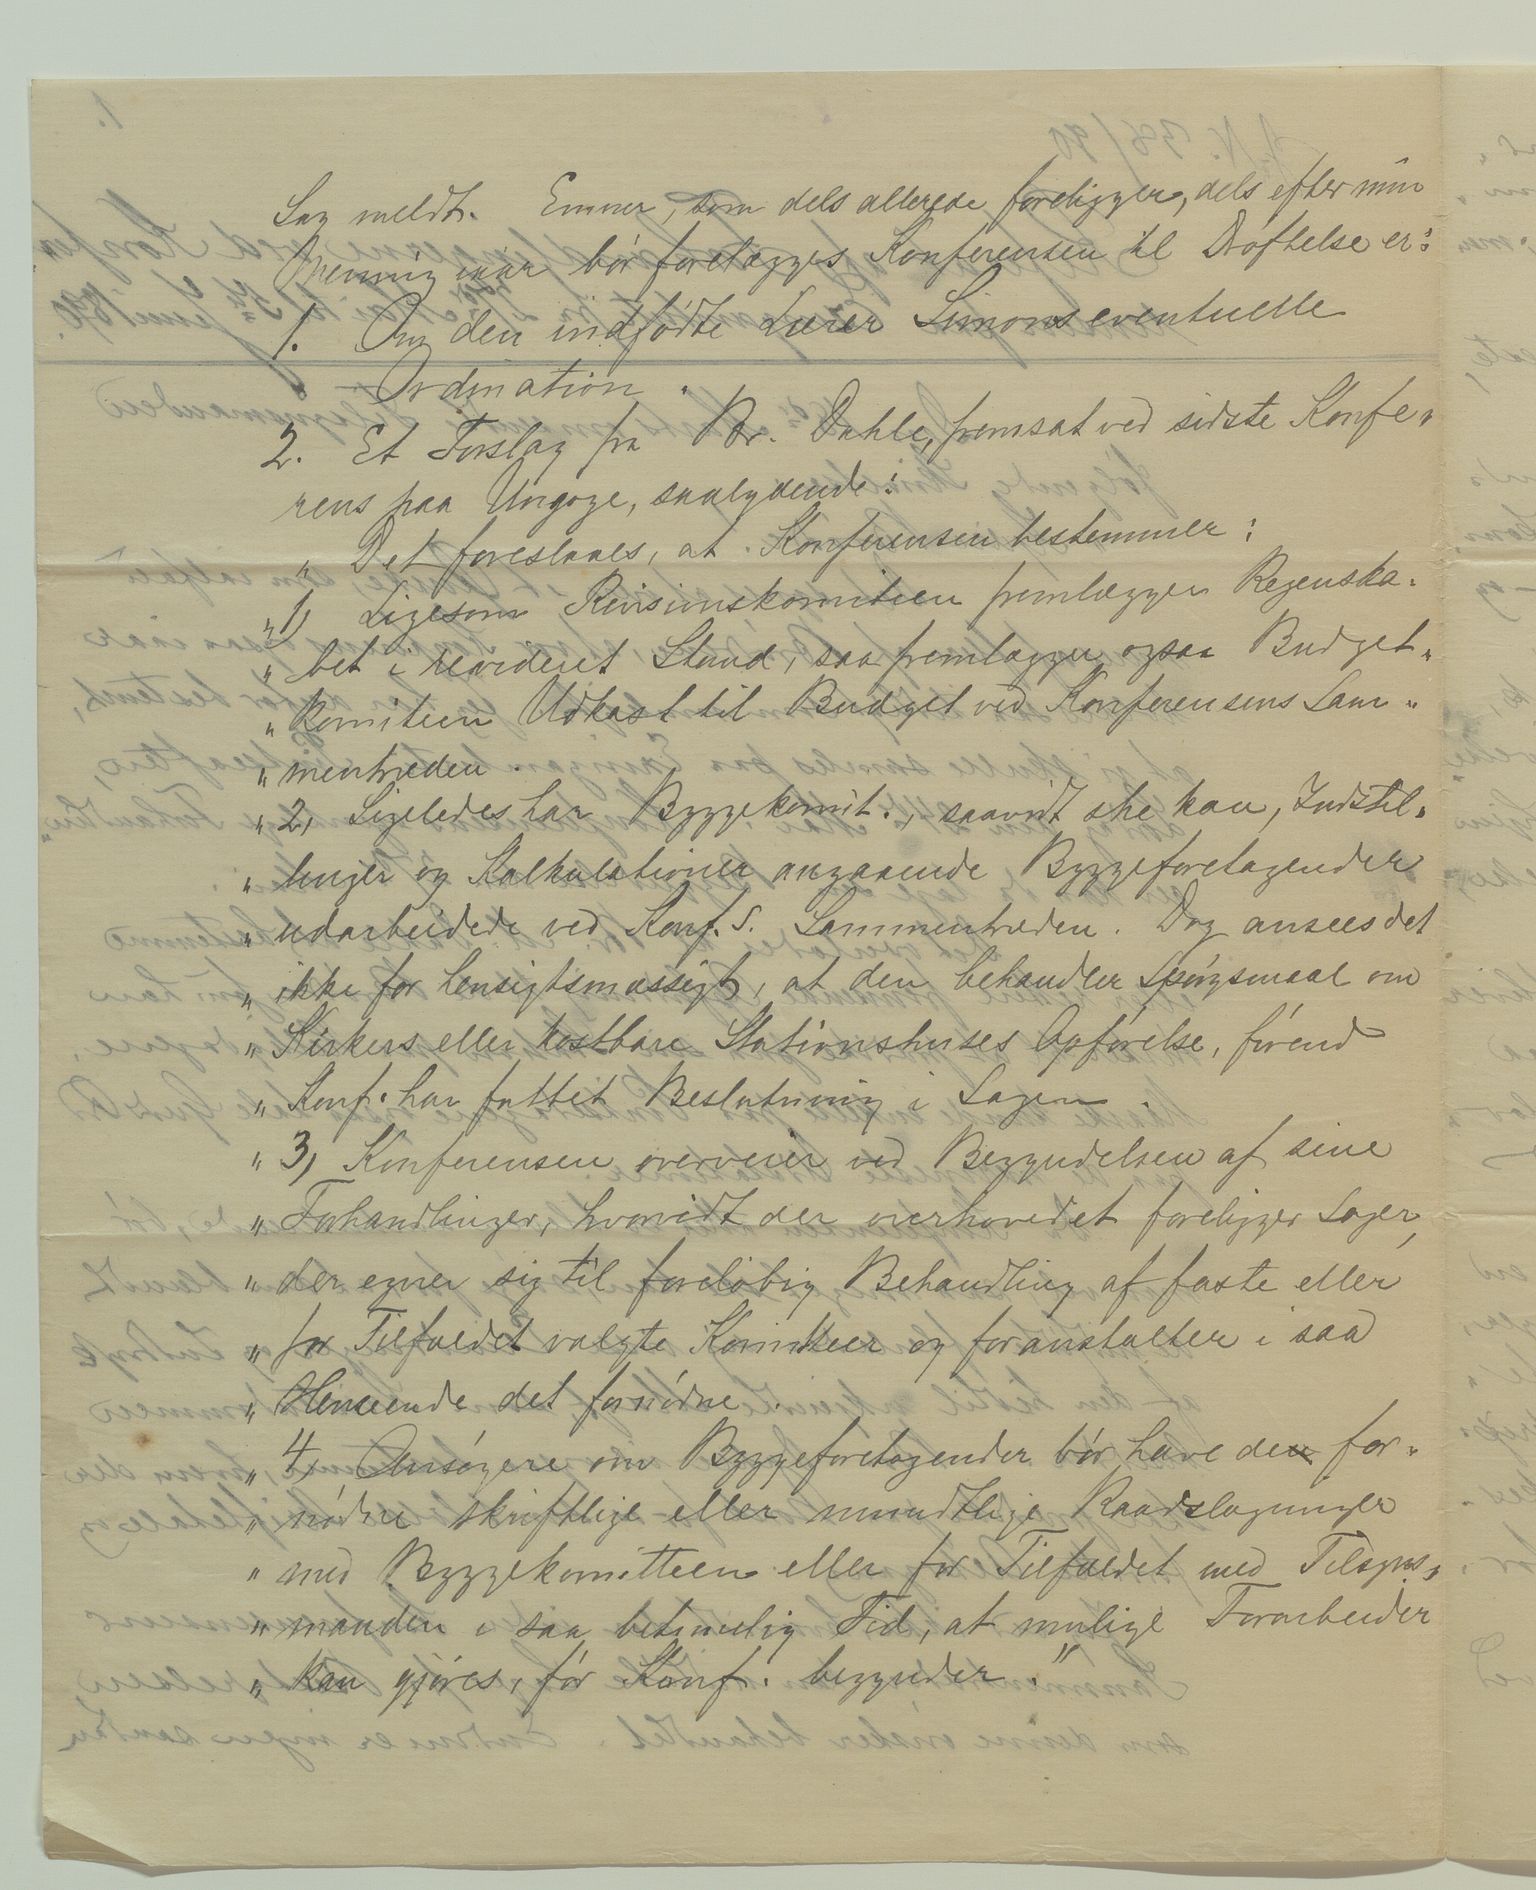 Sag meldt. Emner, som dels allerede foreligger, dels efter min
Mening iaar bør forelægges Konferensen til Drøftelse er:
1. Om den indfødte Lærer Simons eventuelle
Ordination.
2. Et Forslag fra Br. Dahle, fremsat ved sidste Konfe„
rens paa Ungoye, saalydende:
„ Det foreslaaes, at Konferensen bestemmer:
„1, Ligesom Revisionskomiteen fremlægger Regnska„
„ bet i revideret Stand, saa fremlægger ogsaa Budget„
„ komiteen Udkast til Budget ved Konferensens Sam„
„ mentræden.
„ 2, Ligeledes har Byggekomit., saavidt ske kan, Indstil„
„ linger og Kalkulationer angaaende Byggeforetagender
„ udarbeidede ved Konf.s. Sammentræden. Dog ansees det
„ ikke for hensigtsmæssigt, at den behandler Spørgsmaal om
„ Kirkers eller kostbare Stationshuses Opførelse, førend
„ Konf. har fattet Beslutning i Sagen.
„ 3, Konferensen overveier ved Begyndelsen af sine
„ Forhandlinger, hvorvidt der overhovedet foreligger Sager,
„ der egner sig til foreløbig Behandling af faste eller
„ for Tilfældet valgte Komiteer og foranstalter i saa
„ Henseende det fornødne.
„ 4, Ansøgere om Byggeforetagender bør have den for„
„ nødne skriftlige eller mundtlige Raadslagninger
„ med Byggekomitteen eller for Tilfældet med Tilsyns„
„ manden i saa betimelig Tid, at mulige Forarbeider
„ kan gjøres, før Konf. begynder."